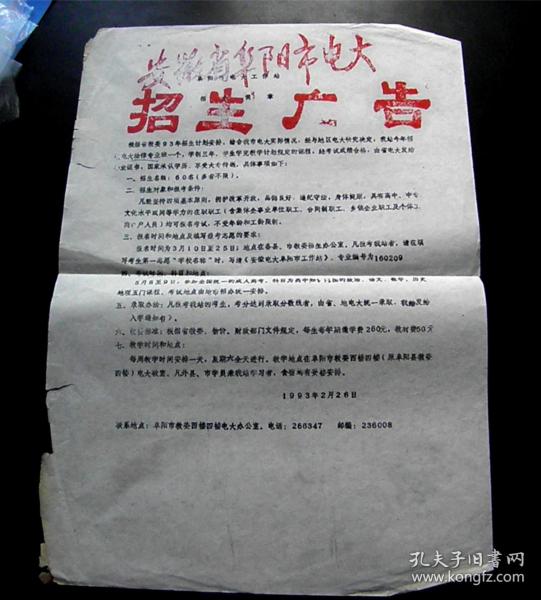 安徽省阜阳市电大
工作站
招生广告
简章
根据省教委93年招生计划安排，结合我市电大实际情况，经与地区电大研究决定，我站今年招
电大法律专业班一个，学制三年，学生学完教学计划规定的课程，经考试成绩合格，由省电大发给
业证书，国家承认学历，享受大专待遇，具体事项如下：
一、招生名额：60名（多者不限）。
二、招生对象和报考条件：
凡能坚持四项基本原则，拥护改革开放，品德良好，遵纪守法，身体健康，具有高中、中专
文化水平或同等学力的在职职工（含集体企事业单位职工、合同制职工、乡镇企业职工及个体工
商户人员）均可报名考试，不受年龄和工龄限制。
三、报名时间和地点及填写报考志愿的要求：
报名时间为3月10日至25日；地点在各县、市教委招生办公室，凡报考我站者，请在填
写考生第一志愿“学校名称”时，写清《安徽电大阜阳市工作站》，专业编号为160209
四、考试时间、科目和地点：
5月8日至9日，参加全国统一的成人高考，科目为高中和中专的政治、语文、数学、历史
地理五门课程，考试地点由地市招办统一安排。
五、录取办法：凡报考我站的考生，考分达到录取分数线者，由省、地电大统一录取，我站发给
入学通知书。
六、收费标准：根据省教委、物价、财政部门文件规定，每生每年期缴学费260元，教材费50元
七、教学时间和地点：
每周教学时间安排一天，星期六全天进行。教学地点在阜阳市教委西楼四楼（原阜阳县教委
四楼）电大教室。凡外县、市学员来我站学习者，食宿均有妥善安排。
1993年2月26日
联系地点：阜阳市教委西楼四楼电大办公室。电话：266347 邮编：236008
孔夫子旧书网
www.kongfz.com